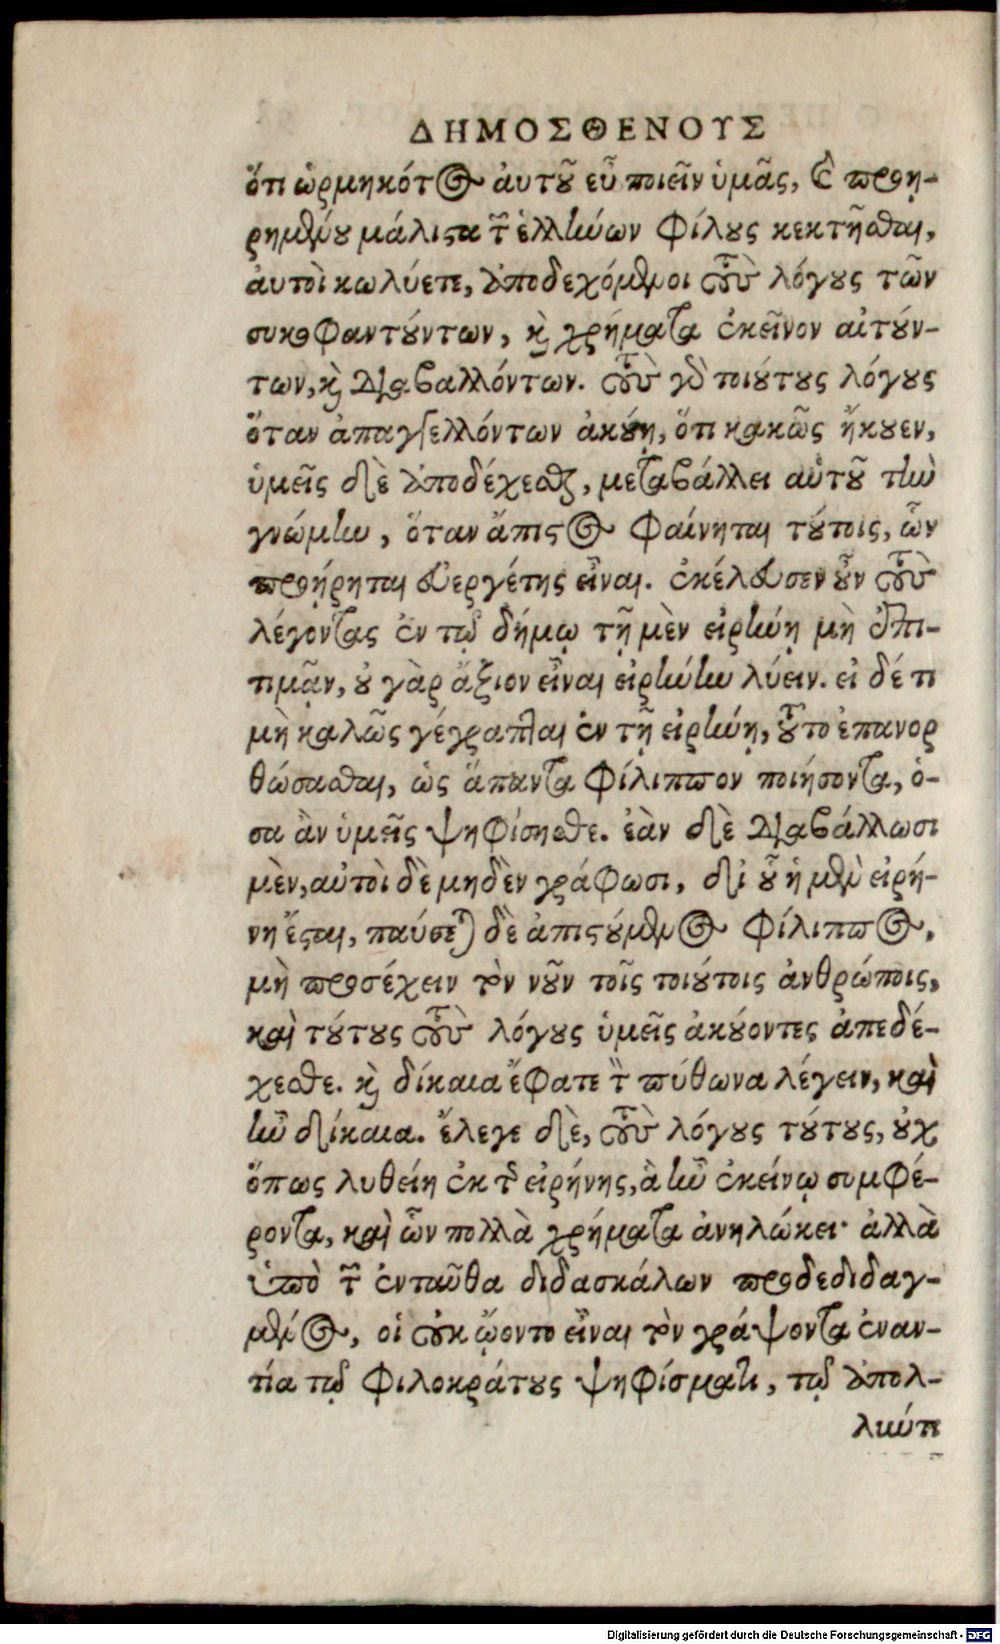 ΔΗΜΟΣΘΕΝΟΥΣ
ὅτι ὡρμηκότος ἀυτοῦ εὖ ποιεῖν ὑμᾶς, καὶ προῃ-
ρημένου μάλιστα τῶν ἑλλήνων φίλους κεκτῆσθαι,
ἀυτοὶ κωλύετε, ὑποδεχόμενοι τοὺς λόγους τῶν
συκοφαντούντων, καὶ χρήματα ἐκεῖνον αἰτούν-
των, καὶ διαβαλλόντων. τοὺς γὰρ τοιούτους λόγους
ὅταν ἀπαγγελλόντων ἀκούῃ, ὅτι κακῶς ἤκουεν,
ὑμεῖς δὲ ὑποδέχεσθε, μεταβάλλει αὐτοῦ τὴν
γνώμην, ὅταν ἄπιστος φαίνηται τούτοις, ὧν
προῄρηται εὐεργέτης εἶναι. ἐκέλευσεν οὖν τοὺς
λέγοντας ἐν τῷ δήμῳ τῇ μὲν εἰρήνῃ μὴ ἐπι-
τιμᾷν, οὐ γὰρ ἄξιον εἶναι εἰρήνην λύειν. εἰ δέ τι
μὴ καλῶς γέγραπται ἐν τῇ εἰρήνῃ, τοῦτο ἐπανορ
θώσασθαι, ὡς ἅπαντα Φίλιππον ποιήσοντα, ὅ-
σα ἂν ὑμεῖς ψηφίσησθε. ἐὰν δὲ διαβάλλωσι
μὲν, αὐτοὶ δὲ μηδὲν γράφωσι, δι οὗ ἡ μὲν εἰρή-
νη ἔσται, παύσεται δὲ ἀπιστούμενος Φίλιππος,
μὴ προσέχειν τὸν νοῦν τοῖς τοιούτοις ἀνθρώποις,
καὶ τούτους τοὺς λόγους ὑμεῖς ἀκούοντες ἀπεδέ-
χεσθε. καὶ δίκαια ἔφατε τὸν πύθωνα λέγειν, καὶ
ἦν δίκαια. ἔλεγε δὲ, τοὺς λόγους τούτους, οὐχ
ὅπως λυθείη ἐκ τῆς εἰρήνης, ἃ ἦν ἐκείνῳ συμφέ-
ροντα, καὶ ὧν πολλὰ χρήματα ἀνηλώκει· ἀλλὰ
ὑπὸ τῶν ἐνταῦθα διδασκάλων προδεδιδαγ-
μένος, οἱ οὐκ ᾤοντο εἶναι τὸν γράψοντα ἐναν-
τία τῷ Φιλοκράτους ψηφίσματι, τῷ ἀπολ-
λύντι
Digitalisierung gefördert durch die Deutsche Forschungsgemeinschaft - DFG